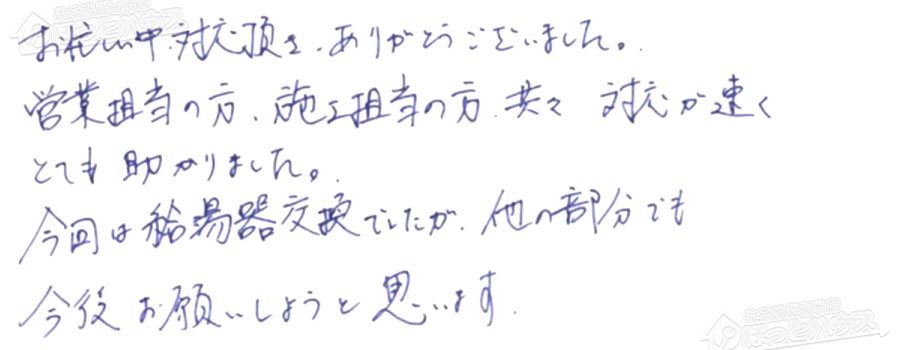 お忙しい中、対応頂き、ありがとうございました。
営業担当の方、施工担当の方、共々 対応が速く
とても助かりました。
今回は給湯器交換でしたが、他の部分でも
今後お願いしようと思います。
ほっとハウス